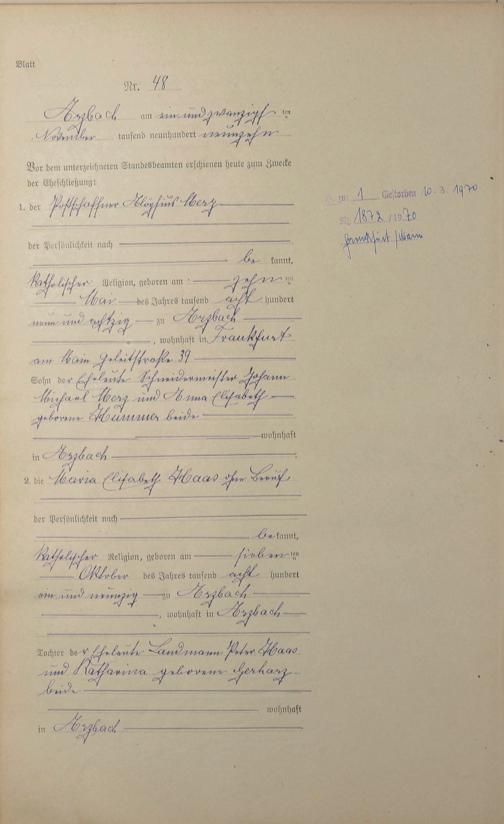 Blatt
Nr. 48
Arzbach am ein und zwanzigsten
November tausend neunhundert neunzehn
Vor dem unterzeichneten Standesbeamten erschienen heute zum Zwecke
der Eheschließung:
1. der Postschaffner Aloysius Merz
der Persönlichkeit nach
be kannt,
katholischer Religion, geboren am zehn ten
Mai des Jahres tausend acht hundert
neun und achtzig zu Arzbach
, wohnhaft in Frankfurt
am Main Geleitstraße 39
Sohn der Eheleute Schneidermeister Johann
Michael Merz und Anna Elisabeth
geborene Hümmer beide
wohnhaft
in Arzbach
2. die Maria Elisabeth Haas ohne Beruf
der Persönlichkeit nach
be kannt,
katholischer Religion, geboren am sieben ten
Oktober des Jahres tausend acht hundert
ein und neunzig zu Arzbach
, wohnhaft in Arzbach
Tochter der Eheleute Landmann Peter Haas
und Katharina geborene Gerharz
beide
wohnhaft
in Arzbach
zu 1 Gestorben 10.3.1970
1872/1970
Frankfurt/Main